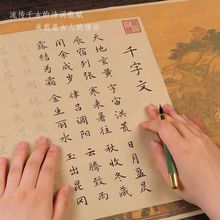 流传千古的诗词歌赋
承载着古人的情怀
千字文
天地玄黄 宇宙洪荒 日月盈昃
辰宿列张 寒来暑往 秋收冬藏
闰余成岁 律吕调阳 云腾致雨
露结为霜 金生丽水 玉出昆冈